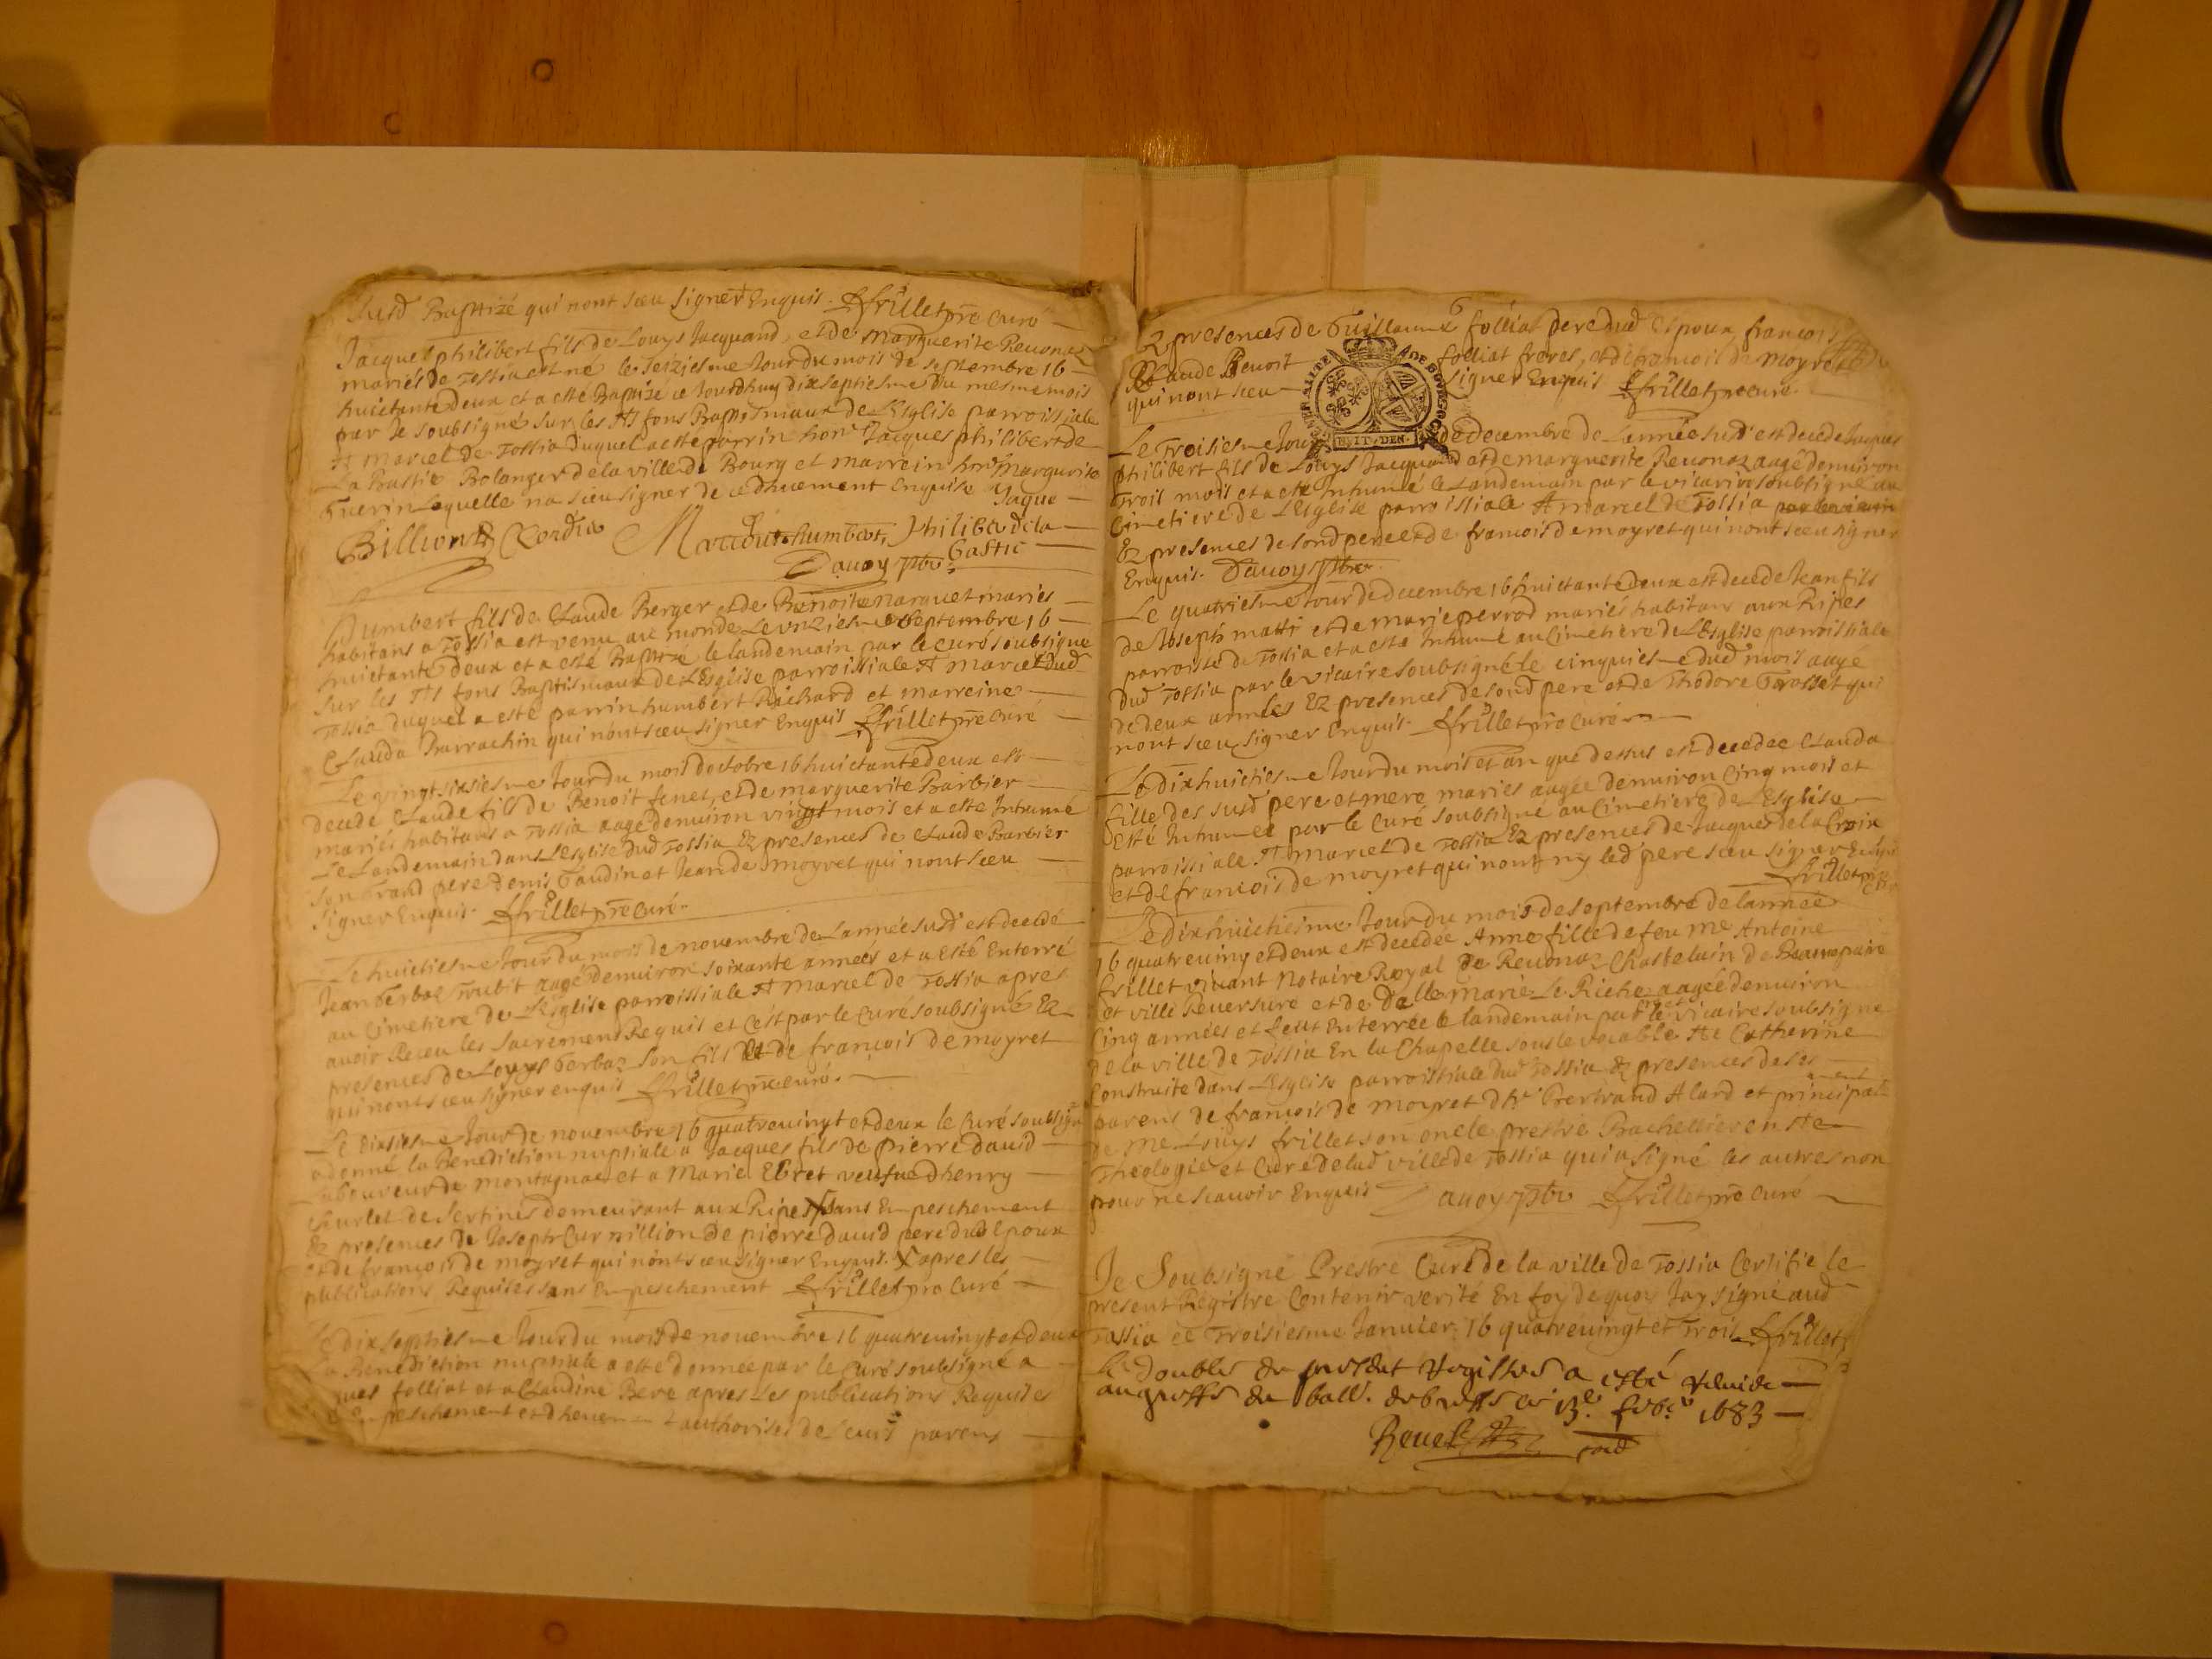 Susd Baptizé qui nont sceu signer Enquis. Ffrillet pre Curé
Jacques philibert fils de Louys Jacquand, et de Marguerite Reuonaz
mariés de Fossia est né le Seiziesme Jour du mois de septembre 16
huictante deux et a esté Baptizé ce Jourdhuy dixseptiesme du mesme mois
par le soubsigné sur les Sts fons Baptismaux de L'Esglise parroissiale
St Marcel de Fossia Duquel a esté parrin honr Jacques philibert de
La Bastie Bolanger de la ville de Bourg et marreine hon Margurite
Guerin Laquelle na sceu signer de ce dhuement Enquise Jaque
Billion humbert, Philiber de la
Dauoy pbr Bastie
Humbert fils de Claude Berger et de Benoite narquet mariés
habitans a Fossia est venu au monde Le vnziesme septembre 16
huictante deux et a esté Baptizé le landemain par le curé soubsigné
sur les Sts fons Baptismaux de L'Esglise parroissiale St Marcel dud
Fossia duquel a esté parrin humbert Richard et marreine
Clauda Parrachin qui nont sceu signer Enquis Ffrillet pre Curé
Le vingtsixiesme Jour du mois doctobre 16 huictante deux est
decede Claude fils de Benoit fenet, et de marguerite Barbier
mariés habitans a Fossia aagé denuiron vingt mois et a esté Inhumé
Le Landemain dans L'esglise dud Fossia Ez presences de Claude Barbier
son Grand pere Denis Gaudin et Jean de moyret qui nont sceu
signer Enquis. Ffrillet pre Curé.
Le huictiesme Jour du mois de nouembre de Lannée susd est decedé
Jean Gerbaz Trubit aagé denuiron soixante années et a Esté Enterré
au Cimetiere de L'Esglise parroissiale St Marcel de Fossia apres
auoir Receu les sacremens Requis et C'est par le Curé soubsigné Ez
presences de Louys Gerbaz son fils et de francois de moyret
qui nont sceu signer enquis Ffrillet pre curé.
Le dixiesme Jour de nouembre 16 quatreuingt et deux le Curé soubsigné
a donné la Benediction nuptiale a Jacques fils de Pierre Dauid
Laboureur de montagnac et a Marie Ebret veufue dhenry
Courlet de Sertines demeurant aux Ripes sans Empeschement
Ez presences de Joseph Curnillion de pierre Dauid pere dud Epoux
et de francois de moyret qui nont sceu signer Enquis. X apres les
publications Requises sans Empeschement Ffrillet pre Curé
Le dix septiesme Jour du mois de nouembre 16 quatreuingt et deux
La Benediction nuptiale a esté donnée par le Curé soubsigné a
ques folliat et a Claudine Bere apres Les publications Requises
Empeschement et dheuement authorisés de Leurs parens
6
Ez presences de Guillaume folliat pere dud Espoux francois
Claude Benoit folliat freres, et de francois de Moyret
qui nont sceu signer Enquis Ffrillet pre curé.
GENERALITE DE BOURGOGNE
HUIT.DEN.
Le Troisiesme Jour de decembre de Lannée susd est decede Jacques
philibert fils de Louys Jacquand et de marguerite Reuonaz aagé denuiron
Trois mois et a esté Inhumé le Landemain par le vicaire soubsigné au
Cimetiere de L'Esglise parroissiale St marcel de Fossia
Ez presences de sond pere et de francois de moyret qui nont sceu signer
Enquis. Dauoy pbr
Le quatriesme Jour de decembre 16 huictante Deux est decede Jean fils
de Joseph matti et de marie perrod mariés habitans aux Ripes
parroisse de Fossia et a esté Inhumé au Cimetiere de L'Esglise parroissiale
dud Fossia par le vicaire soubsigné le cinquiesme dud mois aagé
de deux années Ez presences de soud pere et de Thodore Grosset qui
nont sceu signer Enquis. Ffrillet pre Curé
Le dixhuictiesme Jour du mois et an que dessus est decedee Clauda
fille des susd pere et mere mariés aagée denuiron Cinq mois et
Esté Inhumee par le Curé soubsigné au Cimetiere de L'Esglise
parroissiale St Marcel de Fossia Ez presences de Jacques de la Croix
et de francois de moyret qui nont ny led pere sceu signer Enquis
Ffrillet pre Curé
Le dixhuictiesme Jour du mois de septembre de lannée
16 quatreuing et deux est decedée Anne fille de feu me Antoine
frillet viuant Notaire Royal de Reuonaz Chastelain de Beaurepaire
et ville Reuersure et de Dalle marie Le Riche aagée denuiron
Cinq années et seut Enterrée le landemain par le vicaire soubsigné
de la ville de Fossia En la Chapelle sous le vocable Ste Catherine
Construite dans L'esglise parroissiale dud Fossia Ez presences de ses
parens de francois de Moyret dhr Bertrand Alard et principalement
de me Louys frillet son oncle prestre Bachellier en Ste
Theologie et Curé de lad ville de Fossia qui a signé les autres non
pour ne scauoir Enquis Dauoy pbr Ffrillet pre Curé
Je Soubsigné Prestre Curé de la ville de Fossia Certifie le
present Registre Contenir verité En foy de quoy Jay signé aud
Fossia ce Troisiesme Januier 16 quatreuingt et Trois Ffrillet
Le double du present Registre a esté remis
au greffe du ball. de bresse ce 13e febr 1683